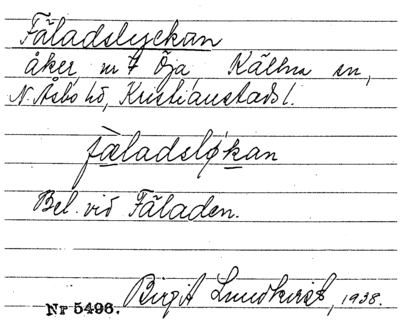 Fäladslyckan
åker, nr 7 Öja, Källna sn,
N. Åsbo hd, Kristianstads l.
fäladsløkan
Bel. vid Fäladen.
Birgit Lundkvist, 1938.
Nr 5496.